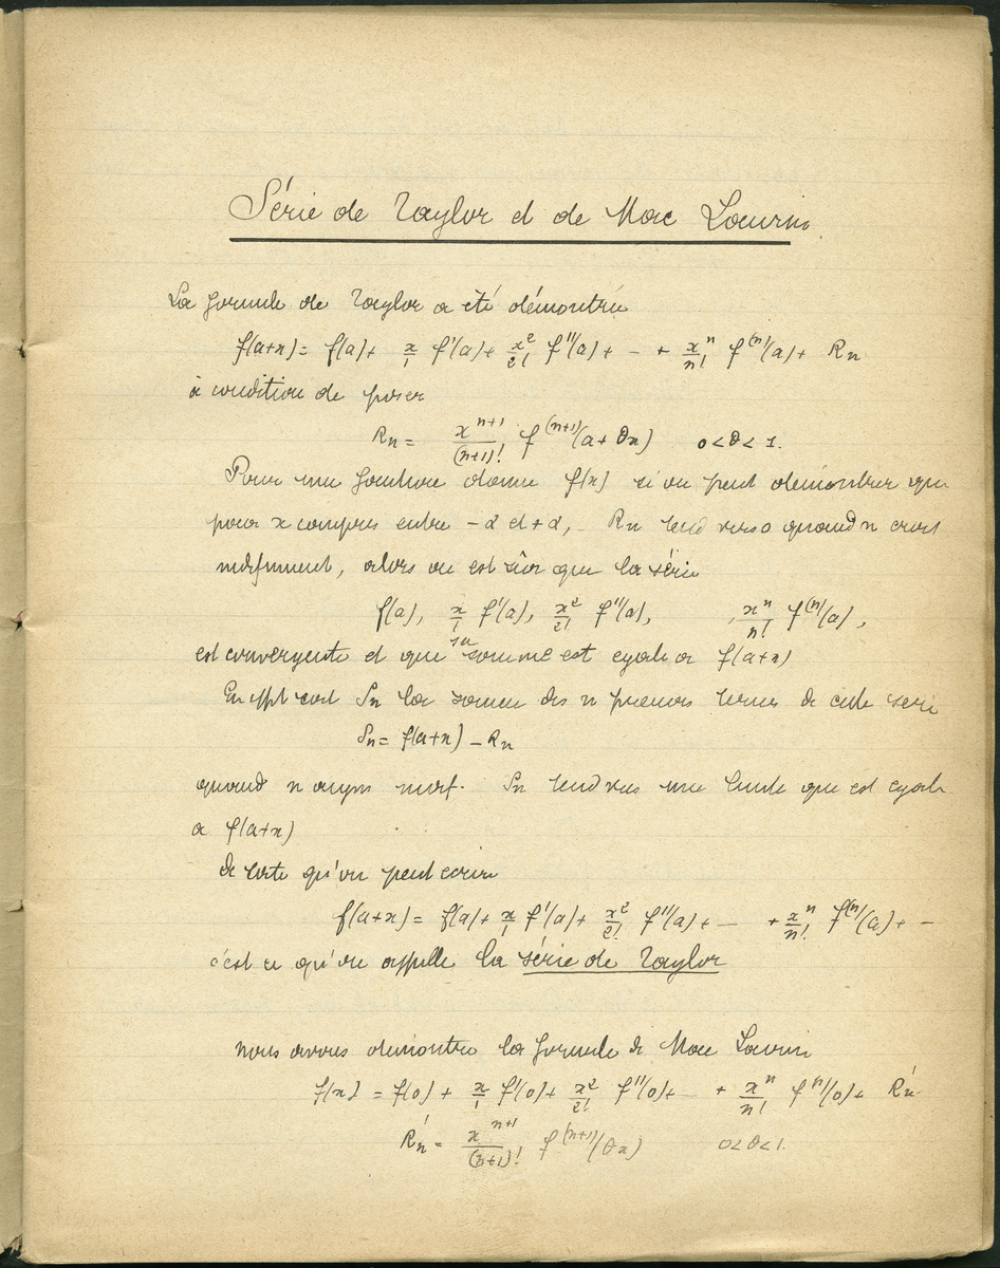 Série de Taylor et de Mac Laurin.
La formule de Taylor a été démontrée
f(a+x) = f(a) + x/1 f'(a) + x²/2! f''(a) + - + xⁿ/n! f⁽ⁿ⁾(a) + Rn
à condition de poser
Rn = xⁿ⁺¹/(n+1)! f⁽ⁿ⁺¹⁾(a + θx) 0 < θ < 1.
Pour une fonction donnée f(x) si on peut démontrer que
pour x compris entre -α et +α, Rn tend vers 0 quand n croît
indéfiniment, alors on est sûr que la série
f(a), x/1 f'(a), x²/2! f''(a), , xⁿ/n! f⁽ⁿ⁾(a),
est convergente et que sa somme est egale a f(a+x)
En effet soit Sn la somme des n premiers termes de cette serie
Sn = f(a+x) - Rn
quand n augm indf. Sn tend vers une limite qui est egale
a f(a+x)
de sorte qu'on peut écrire
f(a+x) = f(a) + x/1 f'(a) + x²/2! f''(a) + -- + xⁿ/n! f⁽ⁿ⁾(a) + -
c'est ce qu'on appelle la série de Taylor
nous avons démontré la formule de Mac Laurin
f(x) = f(0) + x/1 f'(0) + x²/2! f''(0) + + xⁿ/n! f⁽ⁿ⁾(0) + R'n
R'n = xⁿ⁺¹/(n+1)! f⁽ⁿ⁺¹⁾(θx) 0 < θ < 1.